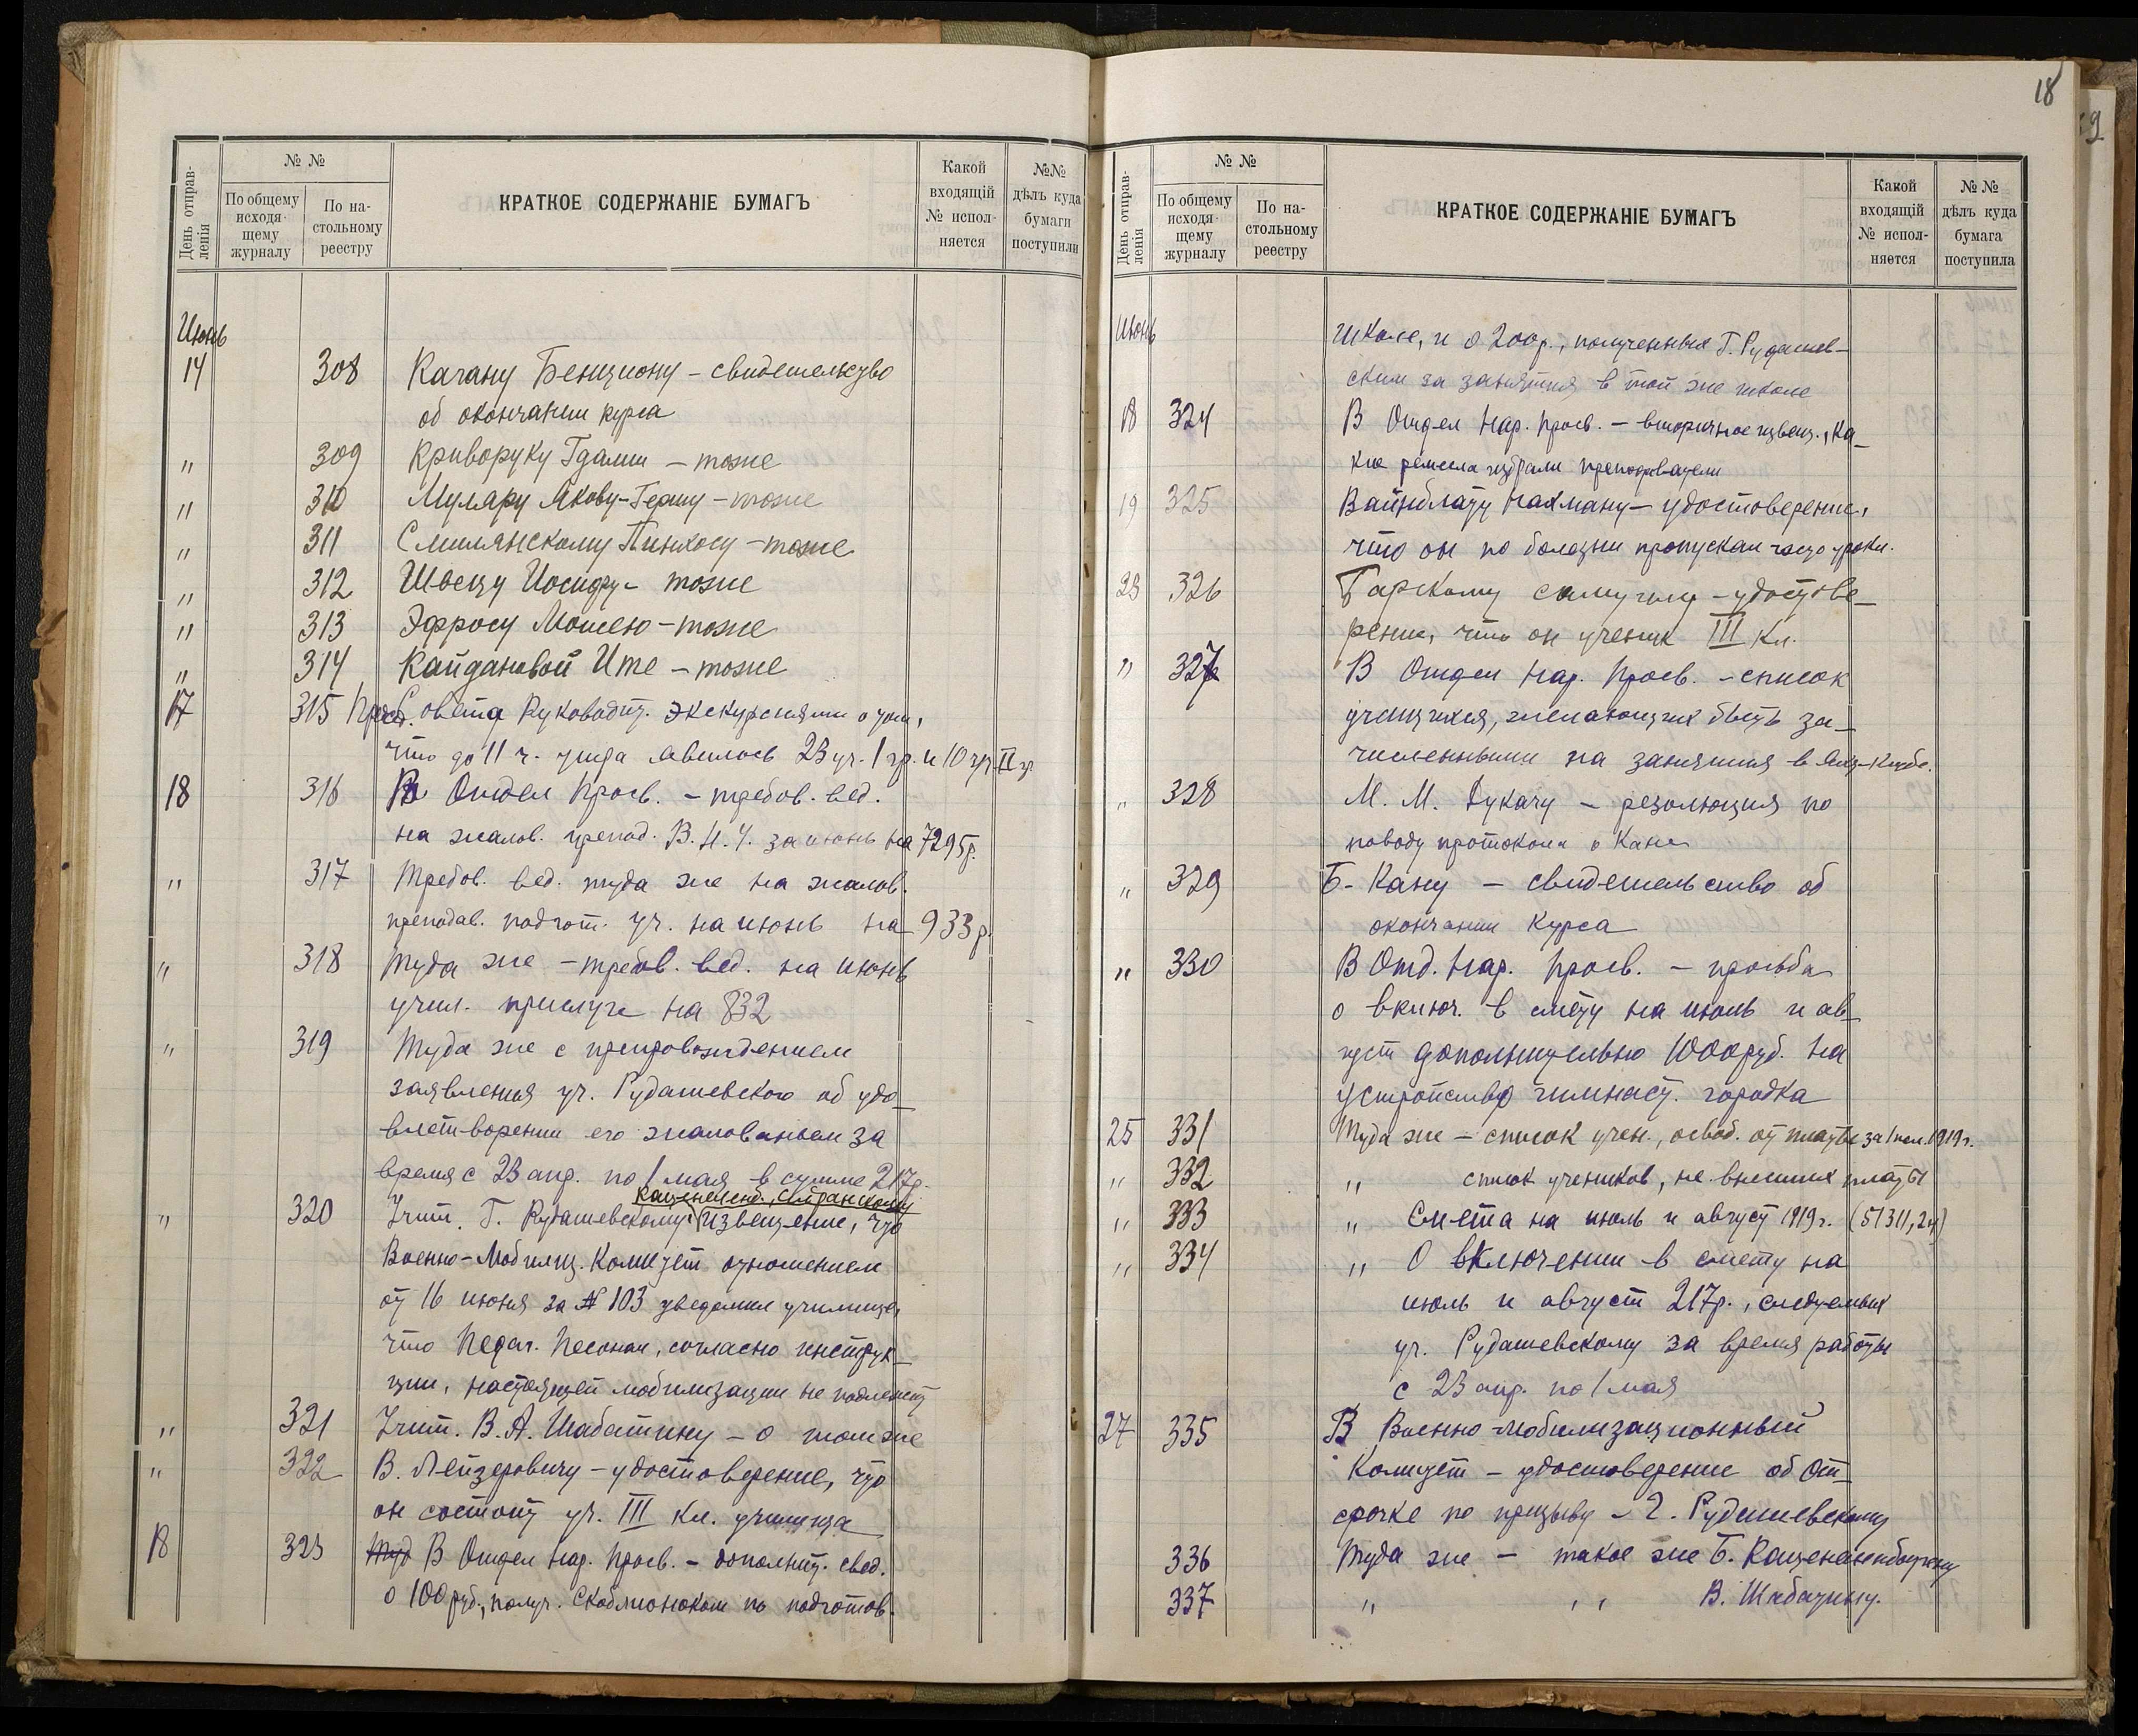 День отправ-
ленія
№ №
По общему
исходя-
щему
журналу
По на-
стольному
реестру
КРАТКОЕ СОДЕРЖАНІЕ БУМАГЪ
Какой
входящій
№ испол-
няется
№№
дѣлъ куда
бумаги
поступили
Июнь
14 308 Кагану Бенциону – свидетельство
об окончании курса
" 309 Криворуку Гдалии – тоже
" 310 Муляру Якову-Гершу – тоже
" 311 Смилянскому Пинхосу – тоже
" 312 Швецу Иосифу – тоже
" 313 Эфросу Мошею – тоже
" 314 Кайдановой Ите – тоже
17 315 Совета Руководит. экскурсиями о том,
что до 11 ч. утра явилось 23 уч. I гр. и 10 уч. II гр
18 316 В Отдел Просв. – требов. вед.
на жалов. препод. В.Н.У. за июнь на 7295р.
" 317 Требов. вед. туда же на жалов.
преподав. подгот. уч. на июнь на 933 р.
" 318 Туда же – требов. вед. на июнь
учил. прислуге на 832
" 319 Туда же с препровождением
заявления уч. Рудашевского об удо-
влетворении его жалованьем за
время с 23 апр. по 1 мая в сумме 217р.
" 320 Учит. Г. Рудашевскому извещение, что
Военно-Мобилиз. Комитет отношением
от 16 июня за № 103 уведомил училище,
что Педаг. Песонал, согласно инструк-
ции, настоящей мобилизации не подлежит
" 321 Учит. В. А. Шабатину – о том же
" 322 В. Лейзеровичу – удостоверение, что
он состоит уч. III кл. училища
18 323 Туд В Отдел Нар. Просв. – дополнит. свед.
о 100 руб., получ. Скоблионоком по подготов.
18
День отправ-
ленія
№ №
По общему
исходя-
щему
журналу
По на-
стольному
реестру
КРАТКОЕ СОДЕРЖАНІЕ БУМАГЪ
Какой
входящій
№ испол-
няется
№ №
дѣлъ куда
бумага
поступила
Июнь школе, и о 200р., полученных Г. Рудашев-
ским за занятия в той же школе
18 324 В Отдел Нар. Просв. – вторичное извещ., ка-
кие ремесла избрали преподаватели
19 325 Вайнблату Нахману – удостоверение,
что он по болезни пропускал часто уроки.
23 326 Барскому Самуилу – удостове-
рение, что он ученик III кл.
" 327 В Отдел Нар. Просв. – список
учащихся, желающих быть за-
численными на занятия в
" 328 М. М. Дукачу – резолюция по
поводу протокола о Кане
" 329 Б. Кану – свидетельство об
окончании курса
" 330 В Отд. Нар. Просв. – просьба
о включ. в смету на июль и ав-
густ дополнительно 1000 руб. на
устройство гимнаст. городка
25 331 Туда же – список учен., освоб. от платы за 1 пол. 1919 г.
" 332 " список учеников, не внесших платы
" 333 " Смета на июль и август 1919 г. (51311,24)
" 334 " О включении в смету на
июль и август 217р., следуемых
уч. Рудашевскому за время работы
с 23 апр. по 1 мая
27 335 В Военно-мобилизационный
Комитет – удостоверение об от-
срочке по призыву – Г. Рудашевскому
336 Туда же – такое же Б. Каценеленбогену
337 " " В. Шабатину.